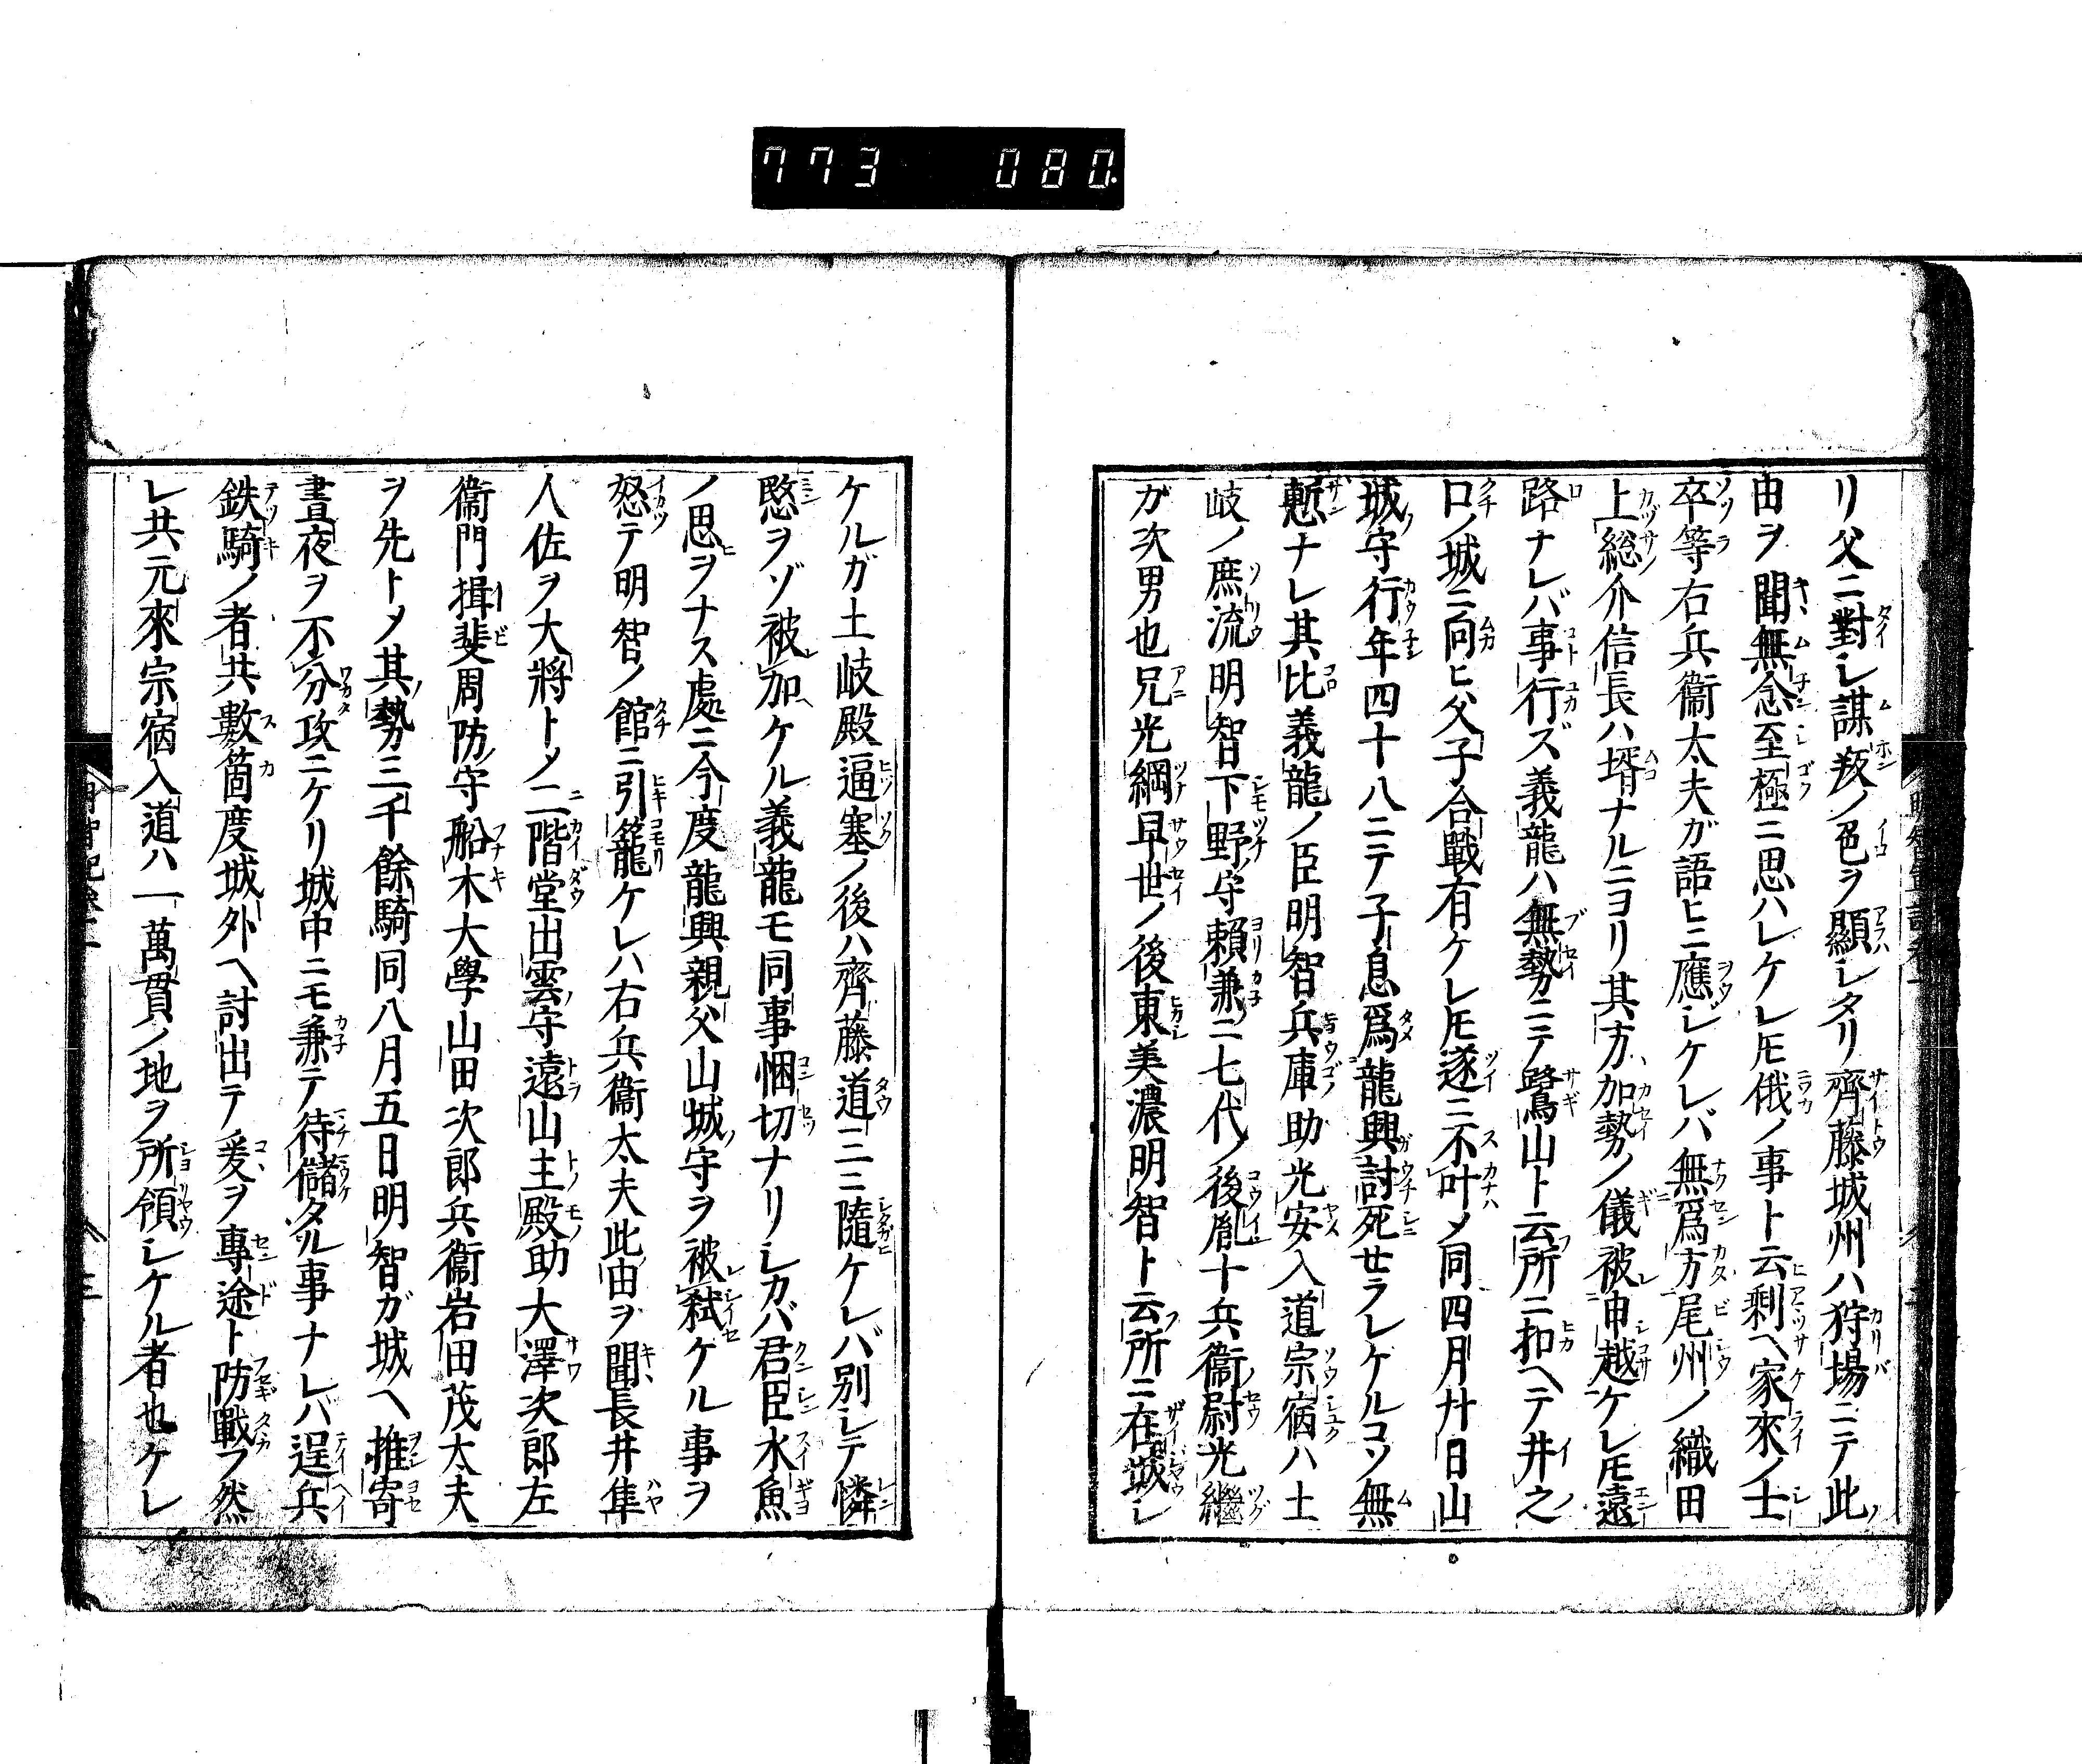 773 080
リ父ニ對シ謀叛ノ色ヲ顯シタリ齊藤城州ハ狩場ニテ此
由ヲ聞無念至極ニ思ハレケレ𪜈俄ノ事ト云剰ヘ家來ノ士
卒等右兵衞太夫ガ語ヒニ應ジケレバ無爲方尾州ノ織田
上総介信長ハ壻ナルニヨリ其方ヘ加勢ノ儀被申越ケレ𪜈遠
路ナレバ事行ズ義龍ハ無勢ニテ鷺山ト云所ニ扣ヘテ井之
口ノ城ニ向ヒ父子合戰有ケレ𪜈遂ニ不叶〆同四月廿日山
城守行年四十八ニテ子息爲龍興討死せラレケルコソ無
慙ナレ其比義龍ノ臣明智兵庫助光安入道宗宿ハ土
岐ノ庶流明智下野守頼兼ニ七代ノ後胤十兵衞尉光繼
ガ次男也兄光綱早世ノ後東美濃明智ト云所ニ在城シ
ケルガ土岐殿逼塞ノ後ハ齊藤道三ニ隨ケレバ別シテ憐
愍ヲゾ被加ケル義龍モ同事悃切ナリシカバ君臣水魚
ノ思ヲナス處ニ今度龍興親父山城守ヲ被弑ケル事ヲ
怒テ明智ノ館ニ引籠ケレハ右兵衞太夫此由ヲ聞長井隼
人佐ヲ大將ト〆二階堂出雲守遠山主殿助大澤次郎左
衞門揖斐周防守船木大學山田次郎兵衞岩田茂太夫
ヲ先ト〆其勢三千餘騎同八月五日明智ガ城ヘ推寄
晝夜ヲ不分攻ニケリ城中ニモ兼テ待儲タル事ナレバ逞兵
鉄騎ノ者共數箇度城外ヘ討出テ爰ヲ專途ト防戰フ然
レ共元來宗宿入道ハ一萬貫ノ地ヲ所領シケル者也ケレ